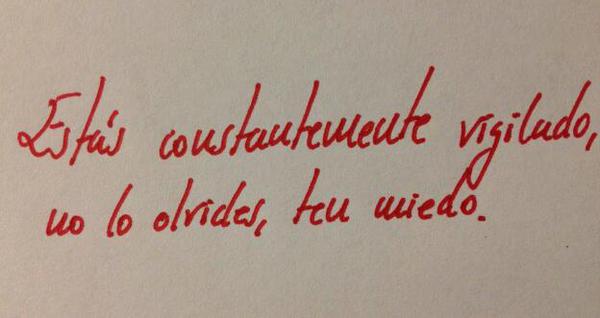 Estás constantemente vigilado,
no lo olvides, ten miedo.